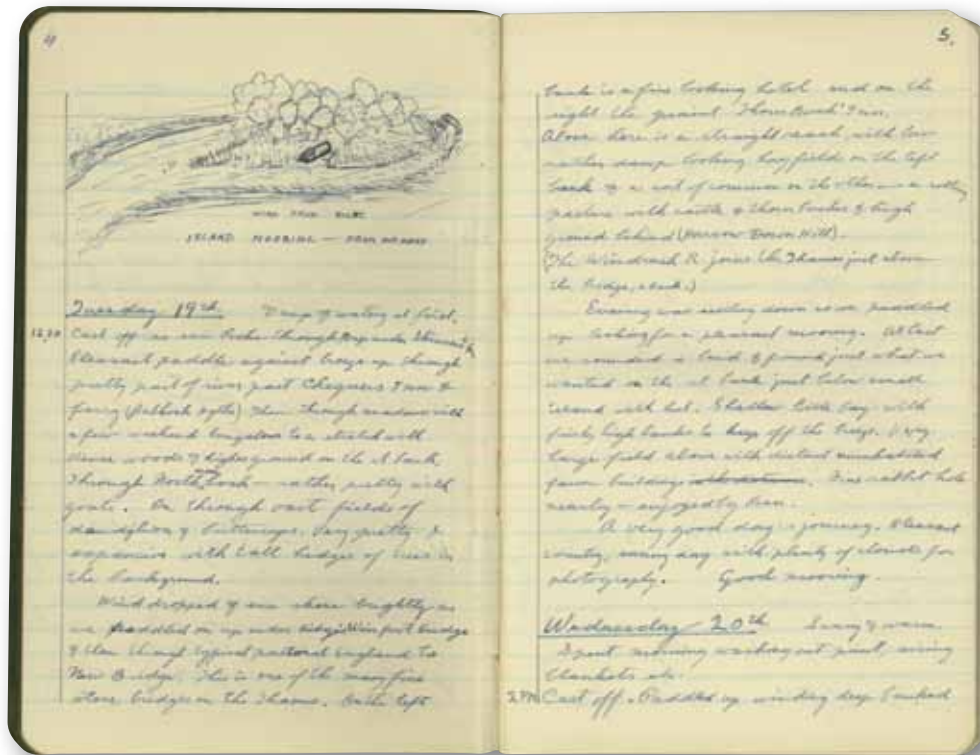 4
ISLAND MOORING — FROM
Tuesday 19th at first.
12.30 Cast off as sun broke through
Pleasant paddle against breeze up through
pretty part of river past Chequers Inn &
ferry (Bablock Hythe) then through meadows with
a few weekend bungalows to a stretch with
dense woods & higher ground on the bank.
Through North – rather pretty with
goats. On through vast fields of
dandelions & buttercups. Very pretty &
expansive with tall hedges of trees in
the background.
Wind dropped & sun shone brightly as
we paddled on up under bridge
& then through typical pastoral England to
New Bridge. This is one of the many fine
stone bridges on the Thames. On the left
5.
bank is a fine looking hotel and on the
right the Inn.
Above here is a straight reach, with low
rather damp looking hayfields on the left
bank & a sort of common on the other — a
pasture with cattle & thorn bushes & high
ground behind (Harrow Down Hill).
(The Windrush R. joins the Thames just above
the bridge,
Evening was settling down as we paddled
up looking for a pleasant mooring. At last
we rounded a bend & found just what we
wanted on the bank just below small
island with Shallow little bay with
fairly high banks to keep off the breeze. Very
large field above with distant
farm buildings Fine rabbit hole
nearby — enjoyed by
A very good day's journey. Pleasant
country, sunny day with plenty of clouds for
photography. Good mooring.
Wednesday 20th Sunny & warm.
Spent morning washing out punt, airing
blankets etc.
2 PM Cast off. Paddled up winding deep banked